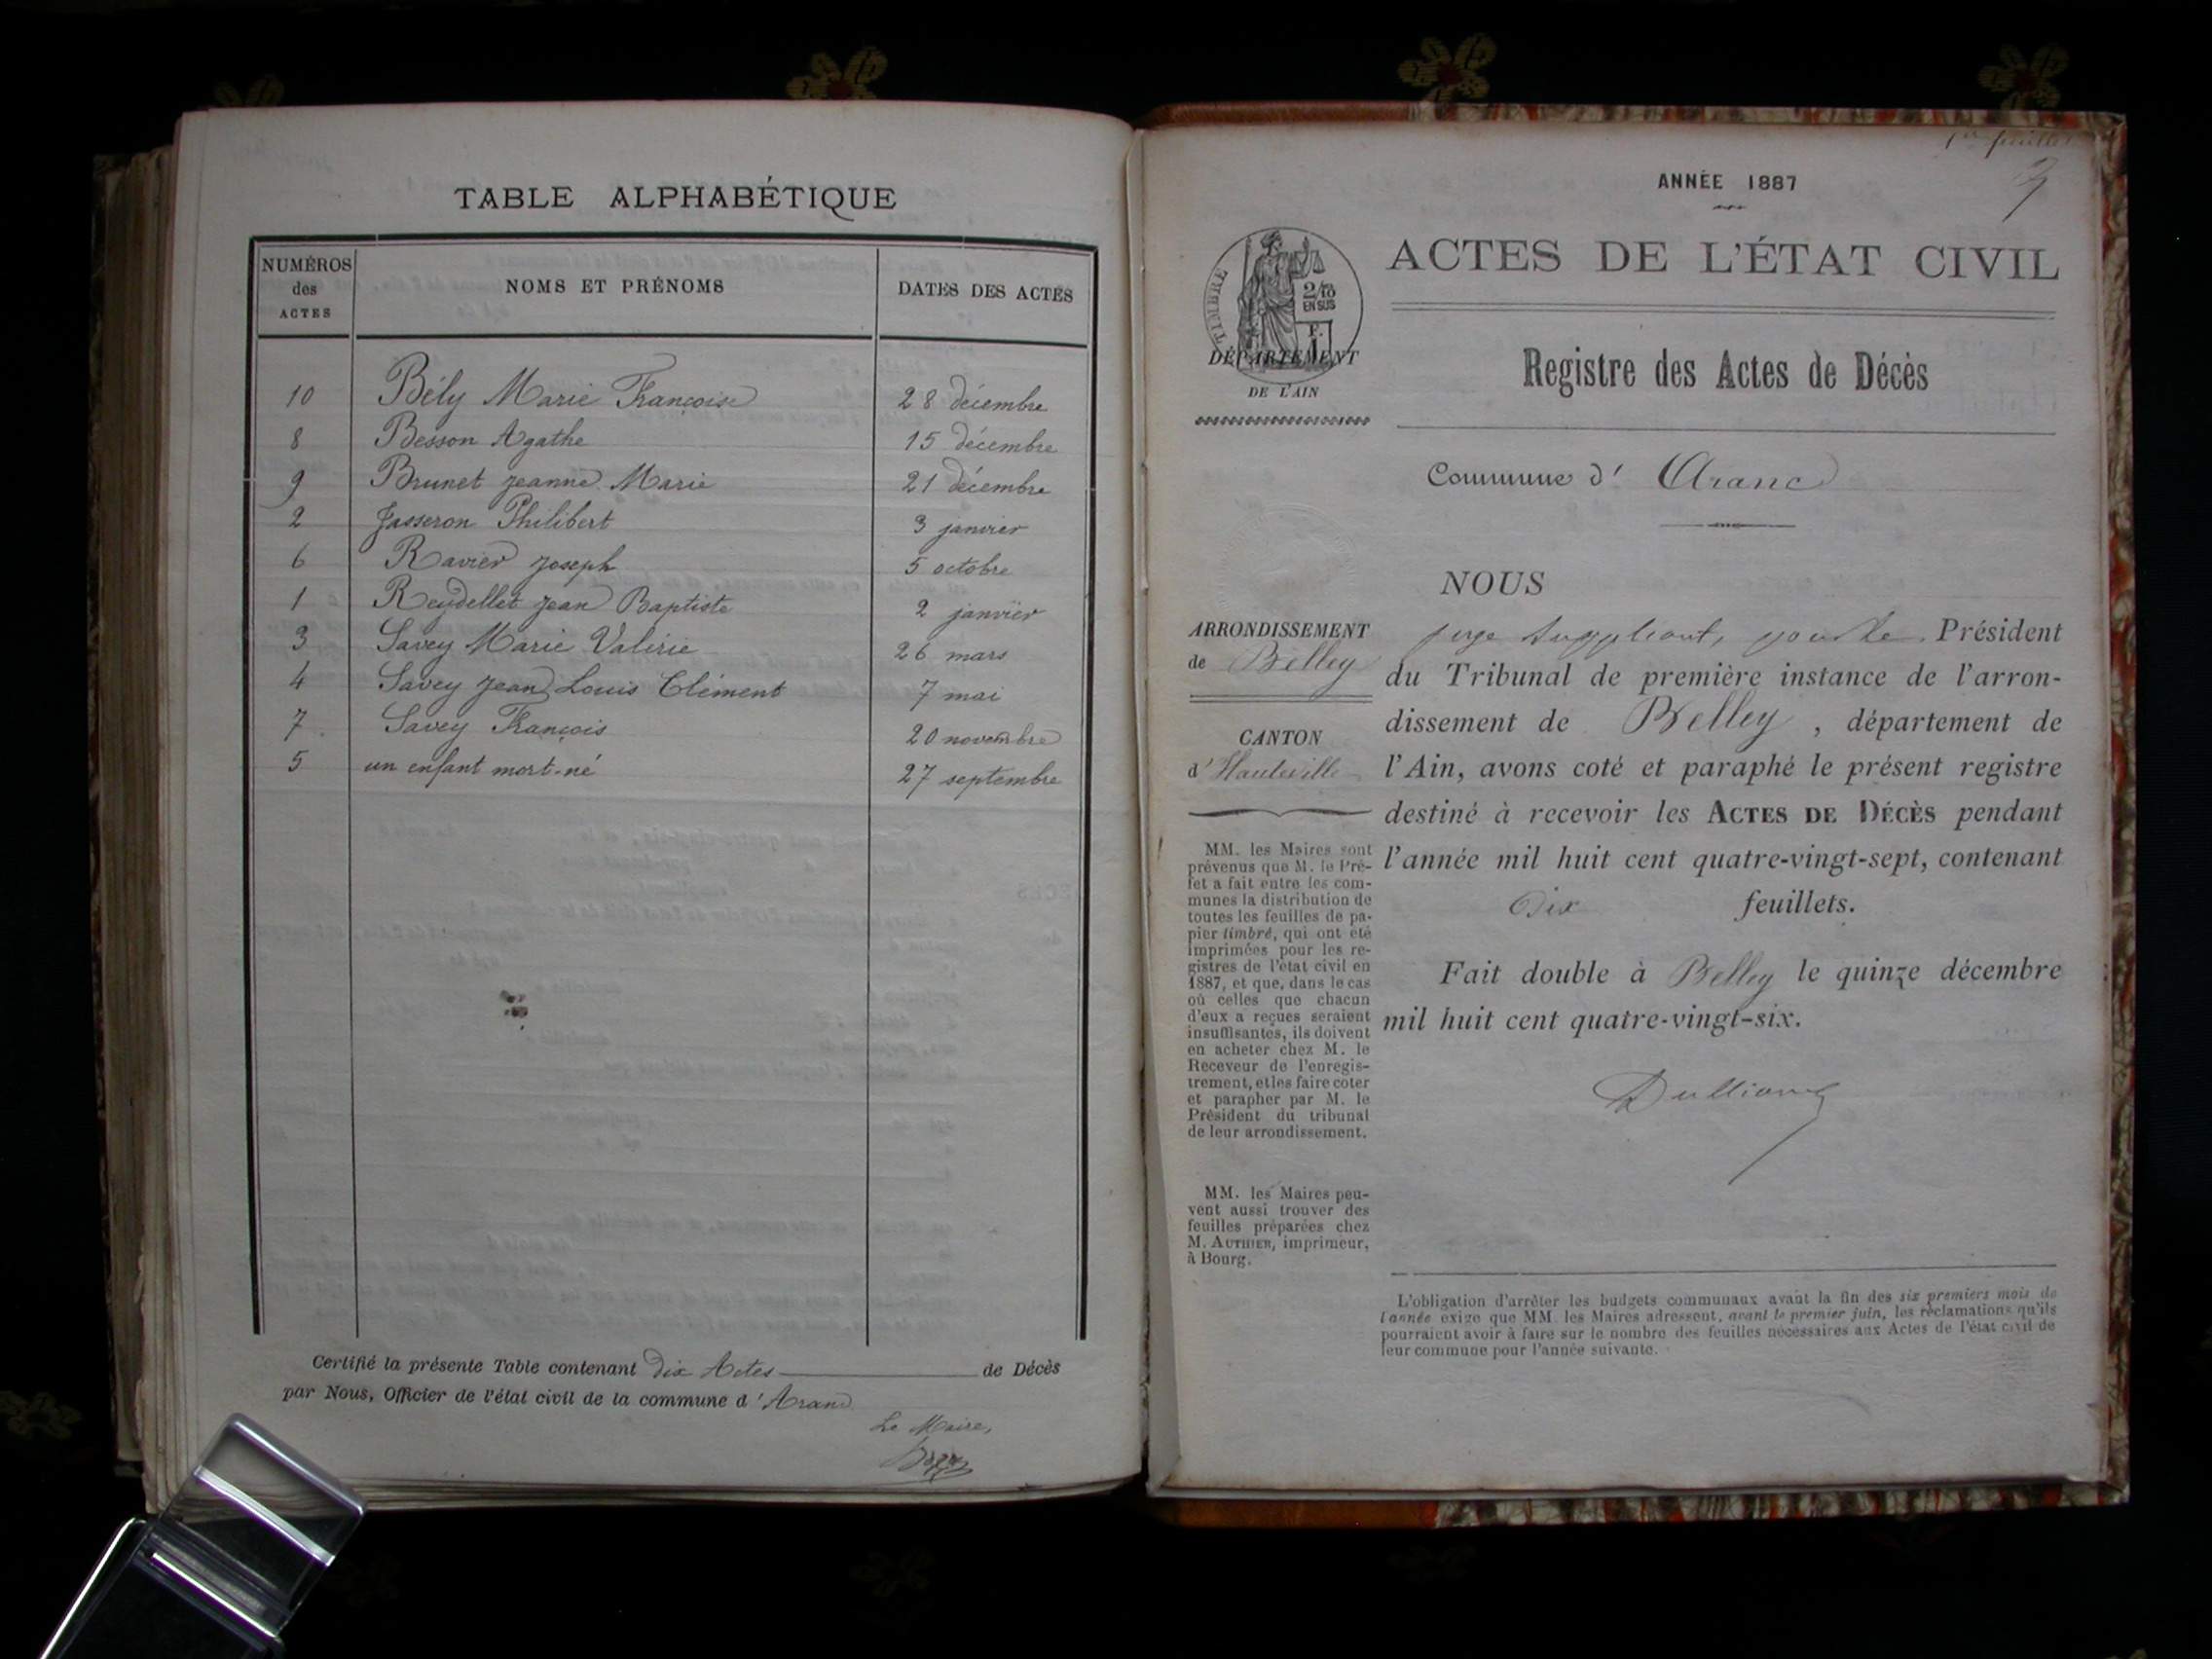 TABLE ALPHABÉTIQUE
NUMÉROS des ACTES NOMS ET PRÉNOMS DATES DES ACTES
10 Bély Marie Françoise 28 décembre
8 Besson Agathe 15 décembre
9 Brunet Jeanne Marie 21 décembre
2 Jasseron Philibert 3 janvier
6 Ravier Joseph 5 octobre
1 Reydellet Jean Baptiste 2 janvier
3 Savey Marie Valérie 26 mars
4 Savey Jean Louis Clément 7 mai
7 Savey François 20 novembre
5 un enfant mort-né 27 septembre
Certifié la présente Table contenant dix Actes de Décès
par Nous, Officier de l'état civil de la commune d'Aranc
Le Maire,
1er feuillet
ANNÉE 1887
ACTES DE L'ÉTAT CIVIL
TIMBRE
2/10
EN SUS
F.
DÉPARTEMENT
DE L'AIN
Registre des Actes de Décès
Commune d' Aranc
ARRONDISSEMENT
de Belley
CANTON
d'Hauteville
MM. les Maires sont
prévenus que M. le Pré-
fet a fait entre les com-
munes la distribution de
toutes les feuilles de pa-
pier timbré, qui ont été
imprimées pour les re-
gistres de l'état civil en
1887, et que, dans le cas
où celles que chacun
d'eux a reçues seraient
insuffisantes, ils doivent
en acheter chez M. le
Receveur de l'enregis-
trement, et les faire coter
et parapher par M. le
Président du tribunal
de leur arrondissement.
MM. les Maires peu-
vent aussi trouver des
feuilles préparées chez
M. AUTHIER, imprimeur,
à Bourg.
NOUS
juge suppléant, pour le Président
du Tribunal de première instance de l'arron-
dissement de Belley, département de
l'Ain, avons coté et paraphé le présent registre
destiné à recevoir les ACTES DE DÉCÈS pendant
l'année mil huit cent quatre-vingt-sept, contenant
Dix feuillets.
Fait double à Belley le quinze décembre
mil huit cent quatre-vingt-six.
L'obligation d'arrêter les budgets communaux avant la fin des six premiers mois de
l'année exige que MM. les Maires adressent, avant le premier juin, les réclamations qu'ils
pourraient avoir à faire sur le nombre des feuilles nécessaires aux Actes de l'état civil de
leur commune pour l'année suivante.